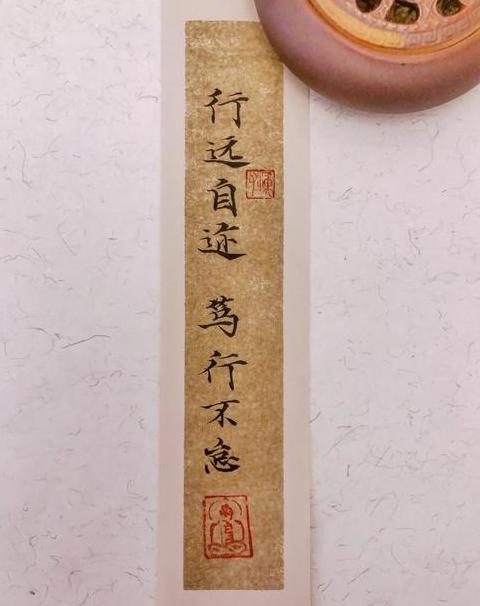 行远自迩 笃行不怠